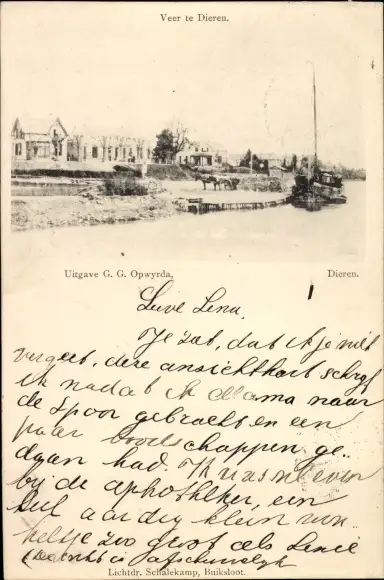 Veer te Dieren.
Uitgave G. G. Opwyrda, Dieren.
Lieve Lena,
Je zat, dat ik je niet
vergeet, deze ansichtkart schryf
ik nadat ik Mama naar
de Spoor gebracht en een
paar boodschappen ge-
daan had. Ik was even
by de apotheker, een
heel aardig klein won-
keltje zoo groot als
(De inkt is afschuwelyk
Lichtdr. Schalekamp, Buiksloot.